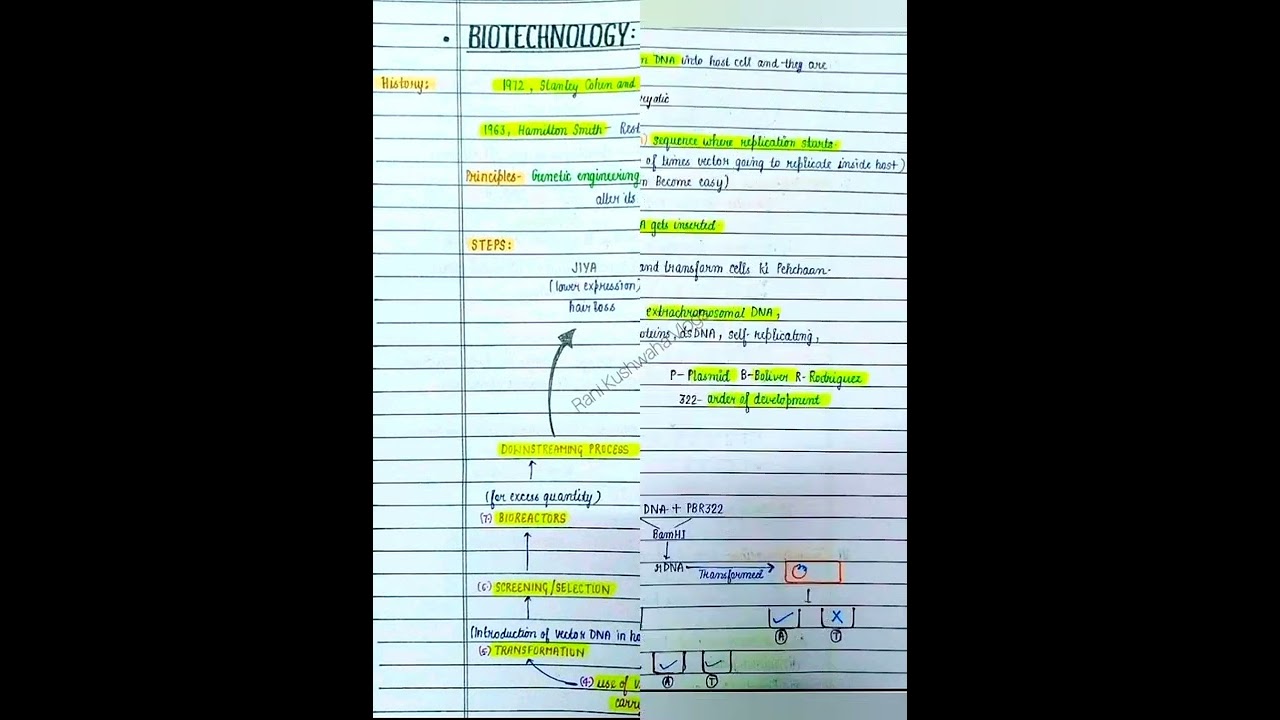 • BIOTECHNOLOGY:
History:
1972, Stanley Cohen and
1963, Hamilton Smith- Rest
Principles- Genetic engineering
alter its
STEPS:
JIYA
(lower expression)
hair loss
DOWNSTREAMING PROCESS
(for excess quantity)
(7.) BIOREACTORS
(6.) SCREENING/SELECTION
(Introduction of vector DNA in ho
(5.) TRANSFORMATION
(4.) use of v
carr
n DNA into host cell and they are
ryotic
) sequence where replication starts.
of times vector going to replicate inside host)
n Become easy)
A gets inserted
and transform cells ki Pehchaan-
extrachromosomal DNA,
oteins, dsDNA, self-replicating,
P- Plasmid B-Boliver R- Rodriguez
322- order of development
DNA + PBR322
BamHI
rDNA Transformed
A T
A T
Rani Kushwaha